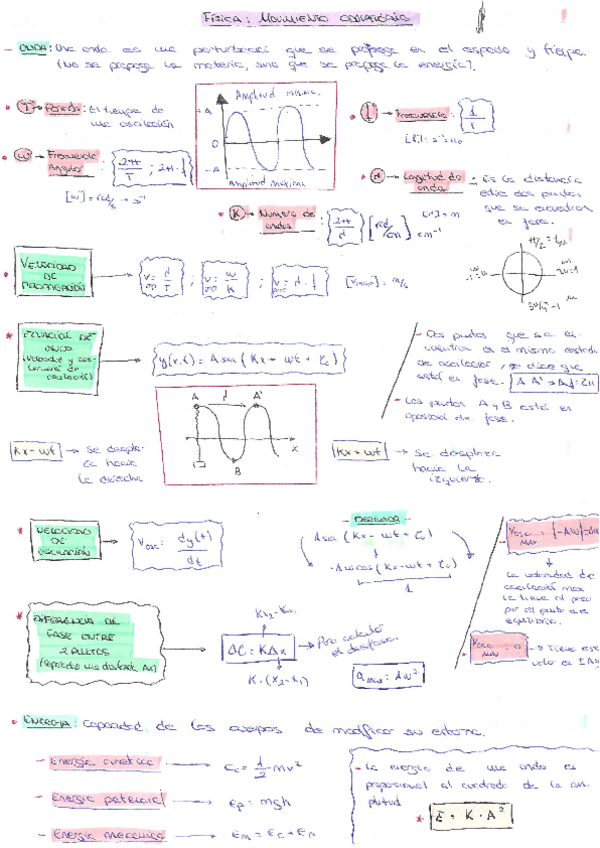 FÍSICA: MOVIMIENTO ONDULATORIO
- ONDA: Una onda es una perturbación que se propaga en el espacio y tiempo.
(No se propaga la materia, sino que se propaga la energía).
T → Periodo: El tiempo de
una oscilación
Amplitud máxima
+A
0
-A
Amplitud máxima
f → Frecuencia: 1/T
[f]: s⁻¹ = Hz
W → Frecuencia
Angular: 2π/T ; 2π·f
[W] = rad/s → s⁻¹
→ Longitud de
onda - Es la distancia
entre dos puntos
que se encuentran
en fase.
K → Número de
ondas: 2π/λ [rad/cm] cm⁻¹
VELOCIDAD
DE
PROPAGACIÓN
V = λ/T ; V = W/K ; V = λ·f
* ECUACIÓN DE
ONDA
y(x,t) = A sen (Kx - wt + φ₀)
- Dos puntos que se en-
cuentran en el mismo estado
de oscilación, se dice que
está en fase.
- Los puntos A y B están en
oposición de fase.
A λ A'
x
B
Kx - wt → Se despla-
za hacia
la derecha
Kx + wt → Se desplaza
hacia la
izquierda.
* VELOCIDAD
DE
OSCILACIÓN
Vosc: dy(t)/dt
- DERIVADA -
A sen (Kx - wt + φ₀)
-Aw cos (Kx - wt + φ₀)
1
La velocidad de
oscilación max
la tiene al pasar
por el punto de
equilibrio.
→ Tiene este
* DIFERENCIA DE
FASE ENTRE
2 PUNTOS
(separados una distancia Δx)
Kx₂ - Kx₁
Δφ = KΔx → Para calcular
el desfase.
K·(x₂-x₁)
a max = Aw²
ENERGIA: Capacidad de los cuerpos de modificar su entorno.
- Energía cinética → Ec = 1/2 mv²
- Energía potencial → Ep = mgh
- Energía mecánica → Em = Ec + Ep
- La energía de una onda es
proporcional al cuadrado de la am-
plitud
* E = K · A²